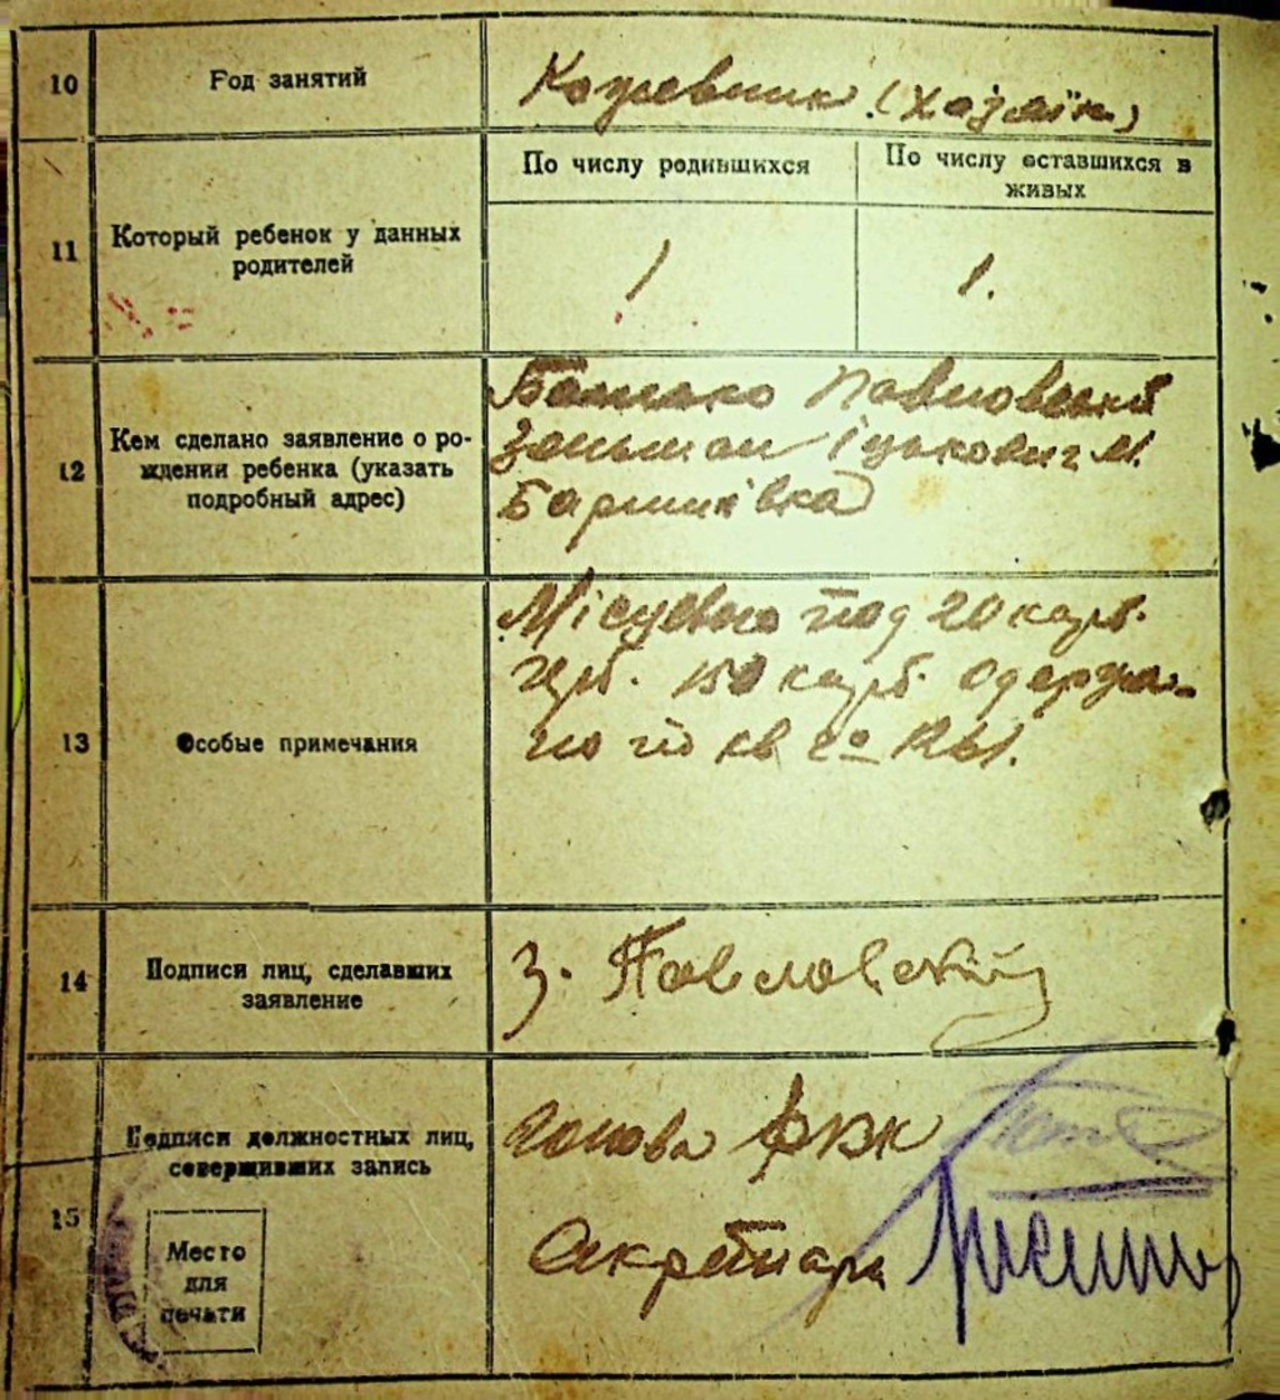 10
Род занятий
Кожевник (хазяїн)
11
Который ребенок у данных
родителей
По числу родившихся
По числу оставшихся в
живых
1
1.
12
Кем сделано заявление о ро-
ждении ребенка (указать
подробный адрес)
Батько Павловський
Зельман Іцькович м.
Баришівка
13
Особые примечания
Місцевого под 20 карб.
герб. 150 карб. одержа-
но по кв
14
Подписи лиц, сделавших
заявление
З. Павловский
15
Подписи должностных лиц,
совершивших запись
Место
для
печати
Голова РВК
Секретарь